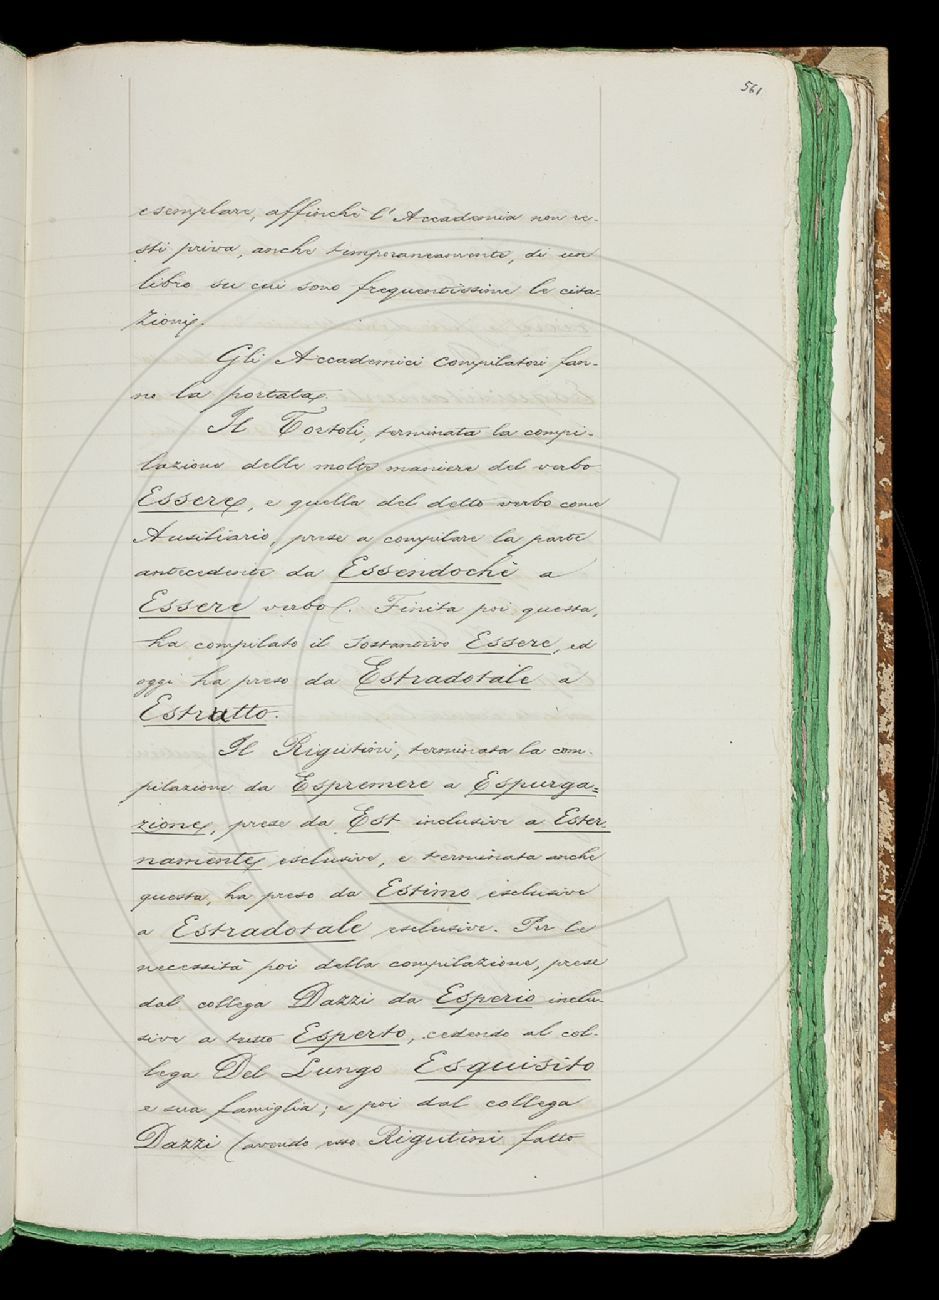 561
esemplare, affinchè l'Accademia non re-
sti priva, anche temporaneamente, di un
libro su cui sono frequentissime le cita-
zioni.
Gli Accademici compilatori fan-
no la portata.
Il Tortoli, terminata la compi-
lazione delle molte maniere del verbo
Essere, e quella del detto verbo come
Ausiliario, prese a compilare la parte
antecedente da Essendochè a
Essere verbo. Finita poi questa,
ha compilato il sostantivo Essere, ed
oggi ha preso da Estradotale a
Estrutto.
Il Rigutini, terminata la com-
pilazione da Espremere a Espurga=
zione, prese da Est inclusive a Ester-
namente esclusive, e terminata anche
questa, ha preso da Estimo esclusive
a Estradotale esclusive. Per le
necessità poi della compilazione, prese
dal collega Dazzi da Esperio inclu-
sive a tutto Esperto, cedendo al col-
lega Del Lungo Esquisito
e sua famiglia; e poi dal collega
Dazzi (avendo esso Rigutini fatto